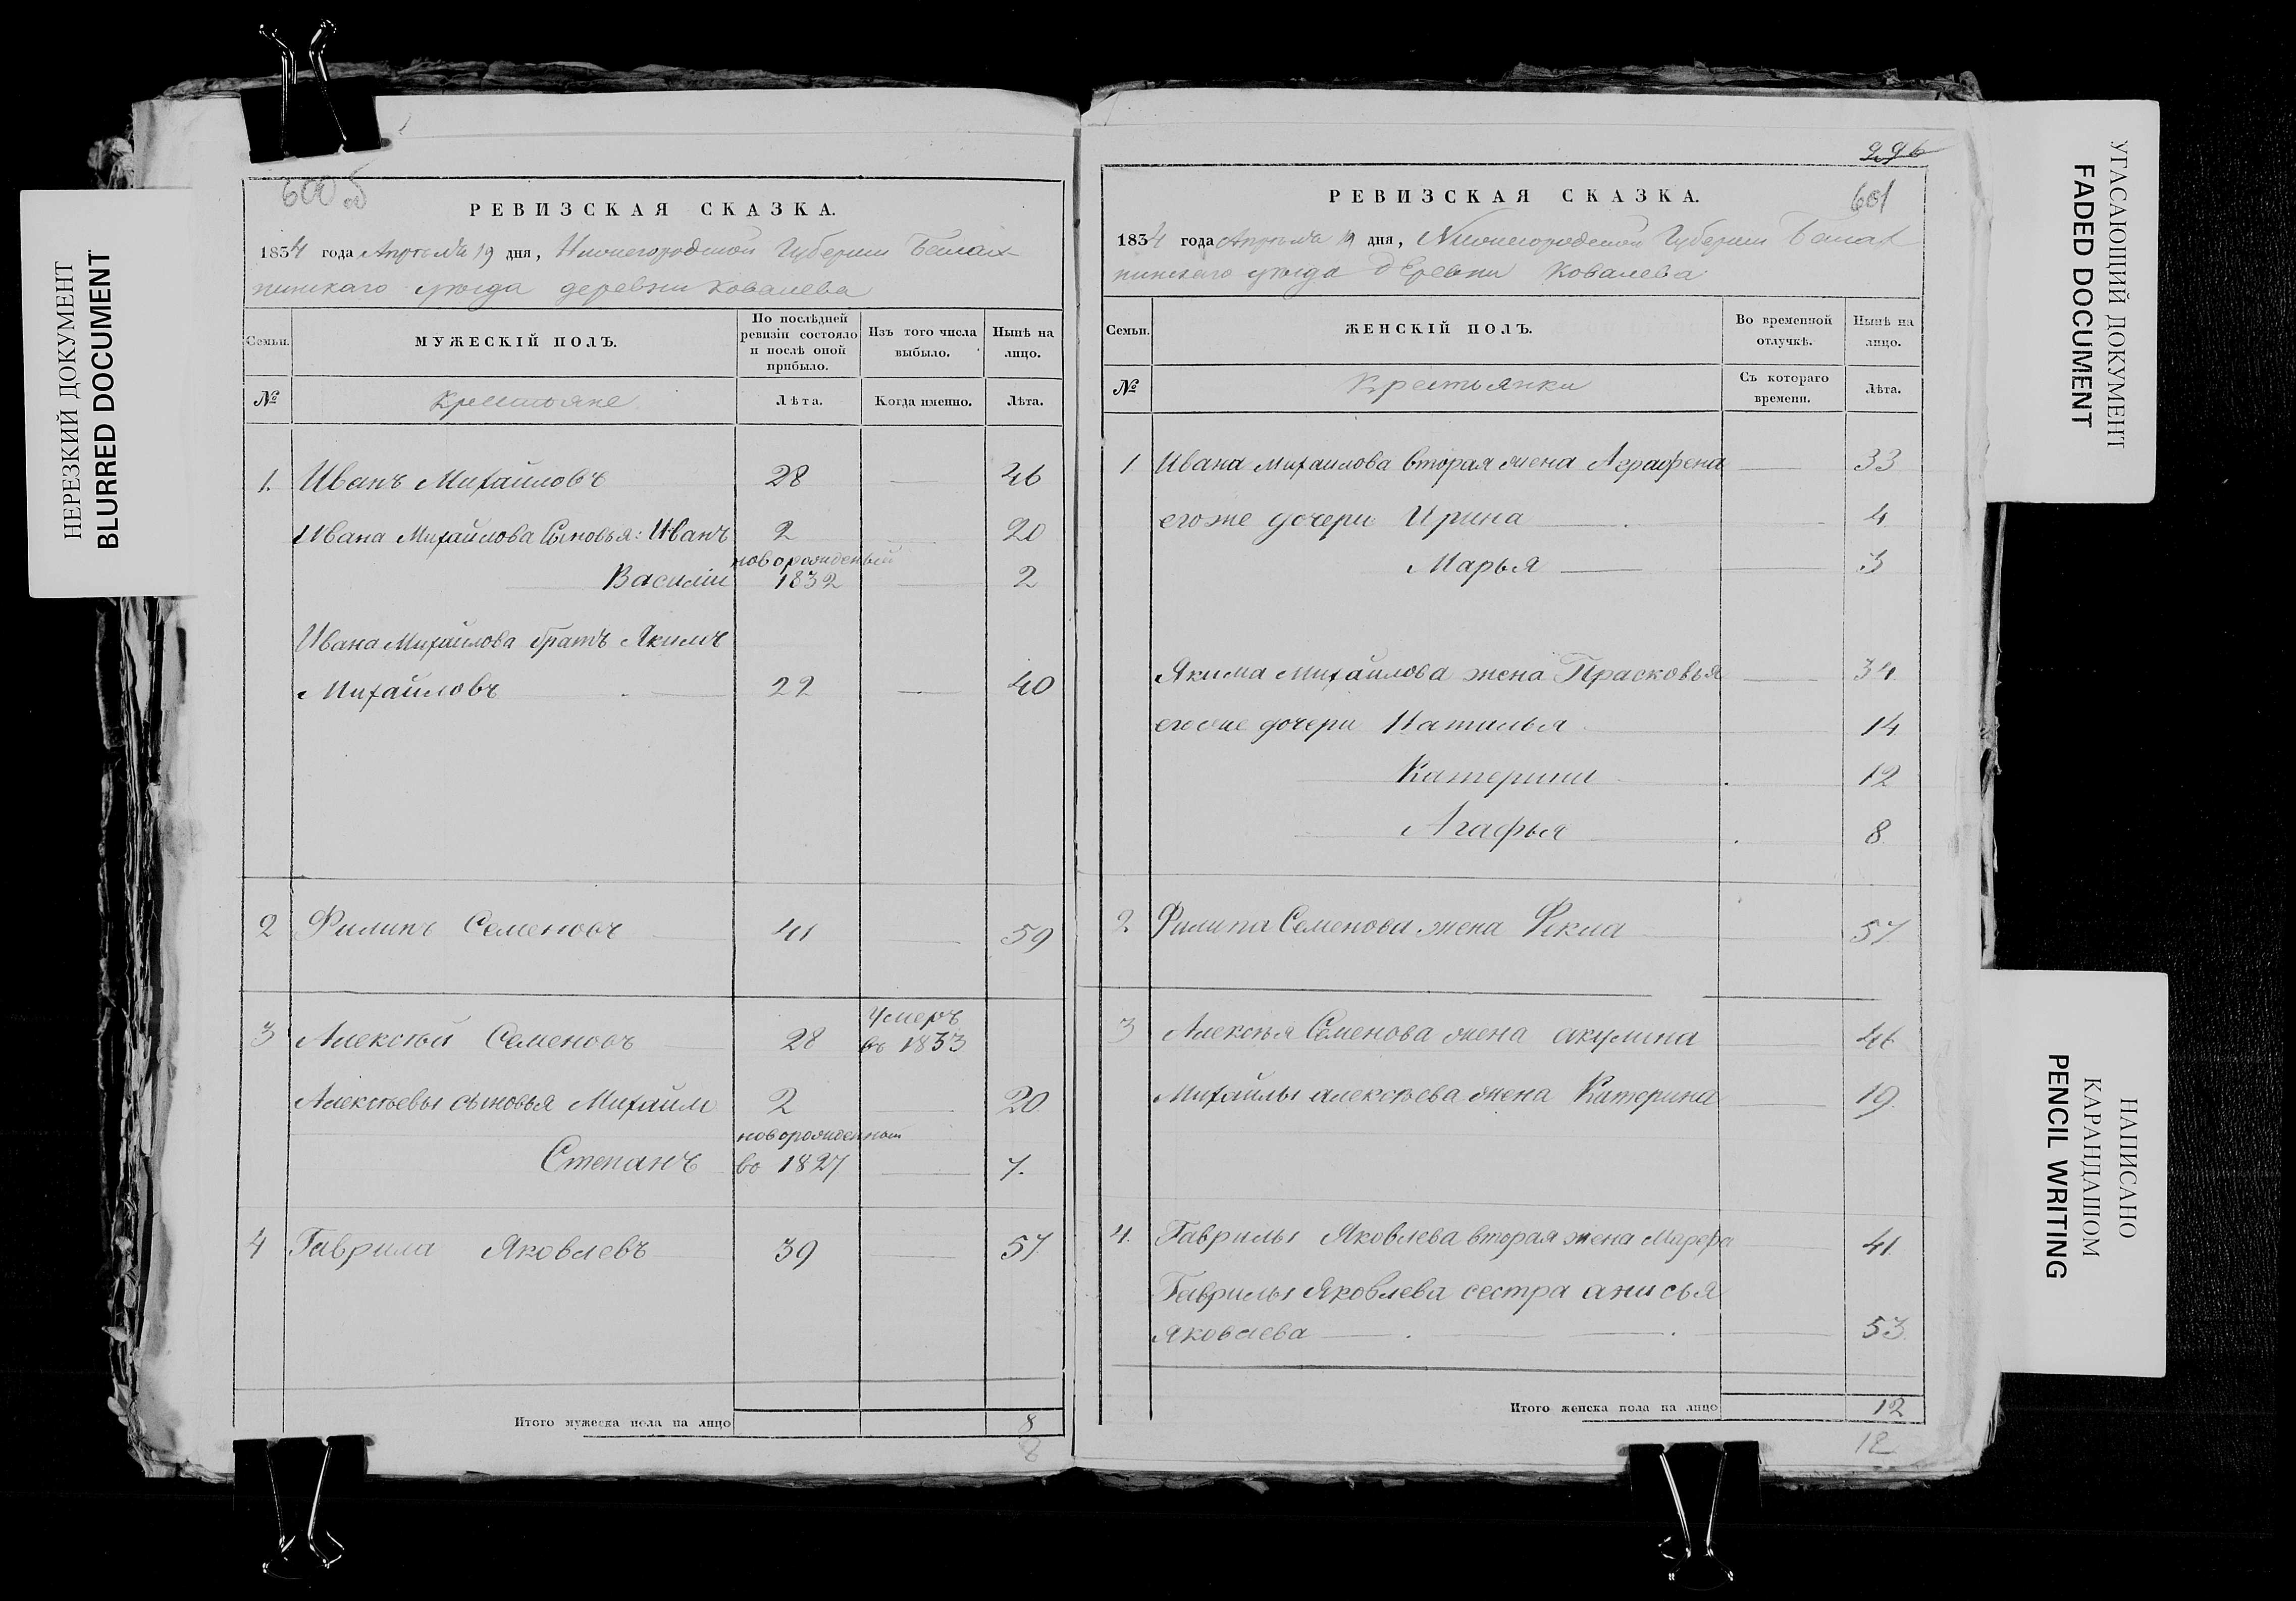 НЕРЕЗКИЙ ДОКУМЕНТ
BLURRED DOCUMENT
600 об
РЕВИЗСКАЯ СКАЗКА.
1834 года Апрѣля 19 дня, Нижегородской Губернии Балах-
нинскаго уѣзда деревни Ковалева
Семьи.
МУЖЕСКІЙ ПОЛЪ.
По послѣдней ревизіи состояло и послѣ оной прибыло.
Изъ того числа выбыло.
Нынѣ на лицо.
№
Крестьяне
Лѣта.
Когда именно.
Лѣта.
1. Иванъ Михайловъ 28 — 46
Ивана Михайлова Сыновья: Иванъ 2 — 20
новорожденый
Василіи 1832 — 2
Ивана Михайлова братъ Якимъ
Михайловъ — 22 — 40
2 Филипъ Семеновъ — 41 — 59
Умеръ
3 Алексѣй Семеновъ — 28 въ 1833
Алексѣевы сыновья Михаилъ 2 — 20
новорожденный
Степанъ во 1827 — 7.
4 Гаврила Яковлевъ 39 — 57
Итого мужеска пола на лицо 8
8
996
601
РЕВИЗСКАЯ СКАЗКА.
1834 года Апрѣля 19 дня, Нижегородской Губернии Балах
нинскаго уѣзда деревни Ковалева
Семьи.
ЖЕНСКІЙ ПОЛЪ.
Во временной отлучкѣ.
Нынѣ на лицо.
№
Крестьянки
Съ котораго времени.
Лѣта.
1 Ивана Михаилова вторая жена Аграфена — 33
егоже дочери Ирина — 4
Марья — 3
Якима Михайлова жена Прасковья — 34
егоже дочери Наталья — 14
Катерина — 12
Агафья — 8
2 Филипа Семенова жена Фекла — 57
3 Алексѣя Семенова жена акулина — 46
Михайлы алексѣева жена Катерина — 19.
4. Гаврилы Яковлева вторая жена — 41.
Гаврилы Яковлева сестра анисья
Яковлева — 53.
Итого женска пола на лицо 12
12
УГАСАЮЩИЙ ДОКУМЕНТ
FADED DOCUMENT
НАПИСАНО
КАРАНДАШОМ
PENCIL WRITING